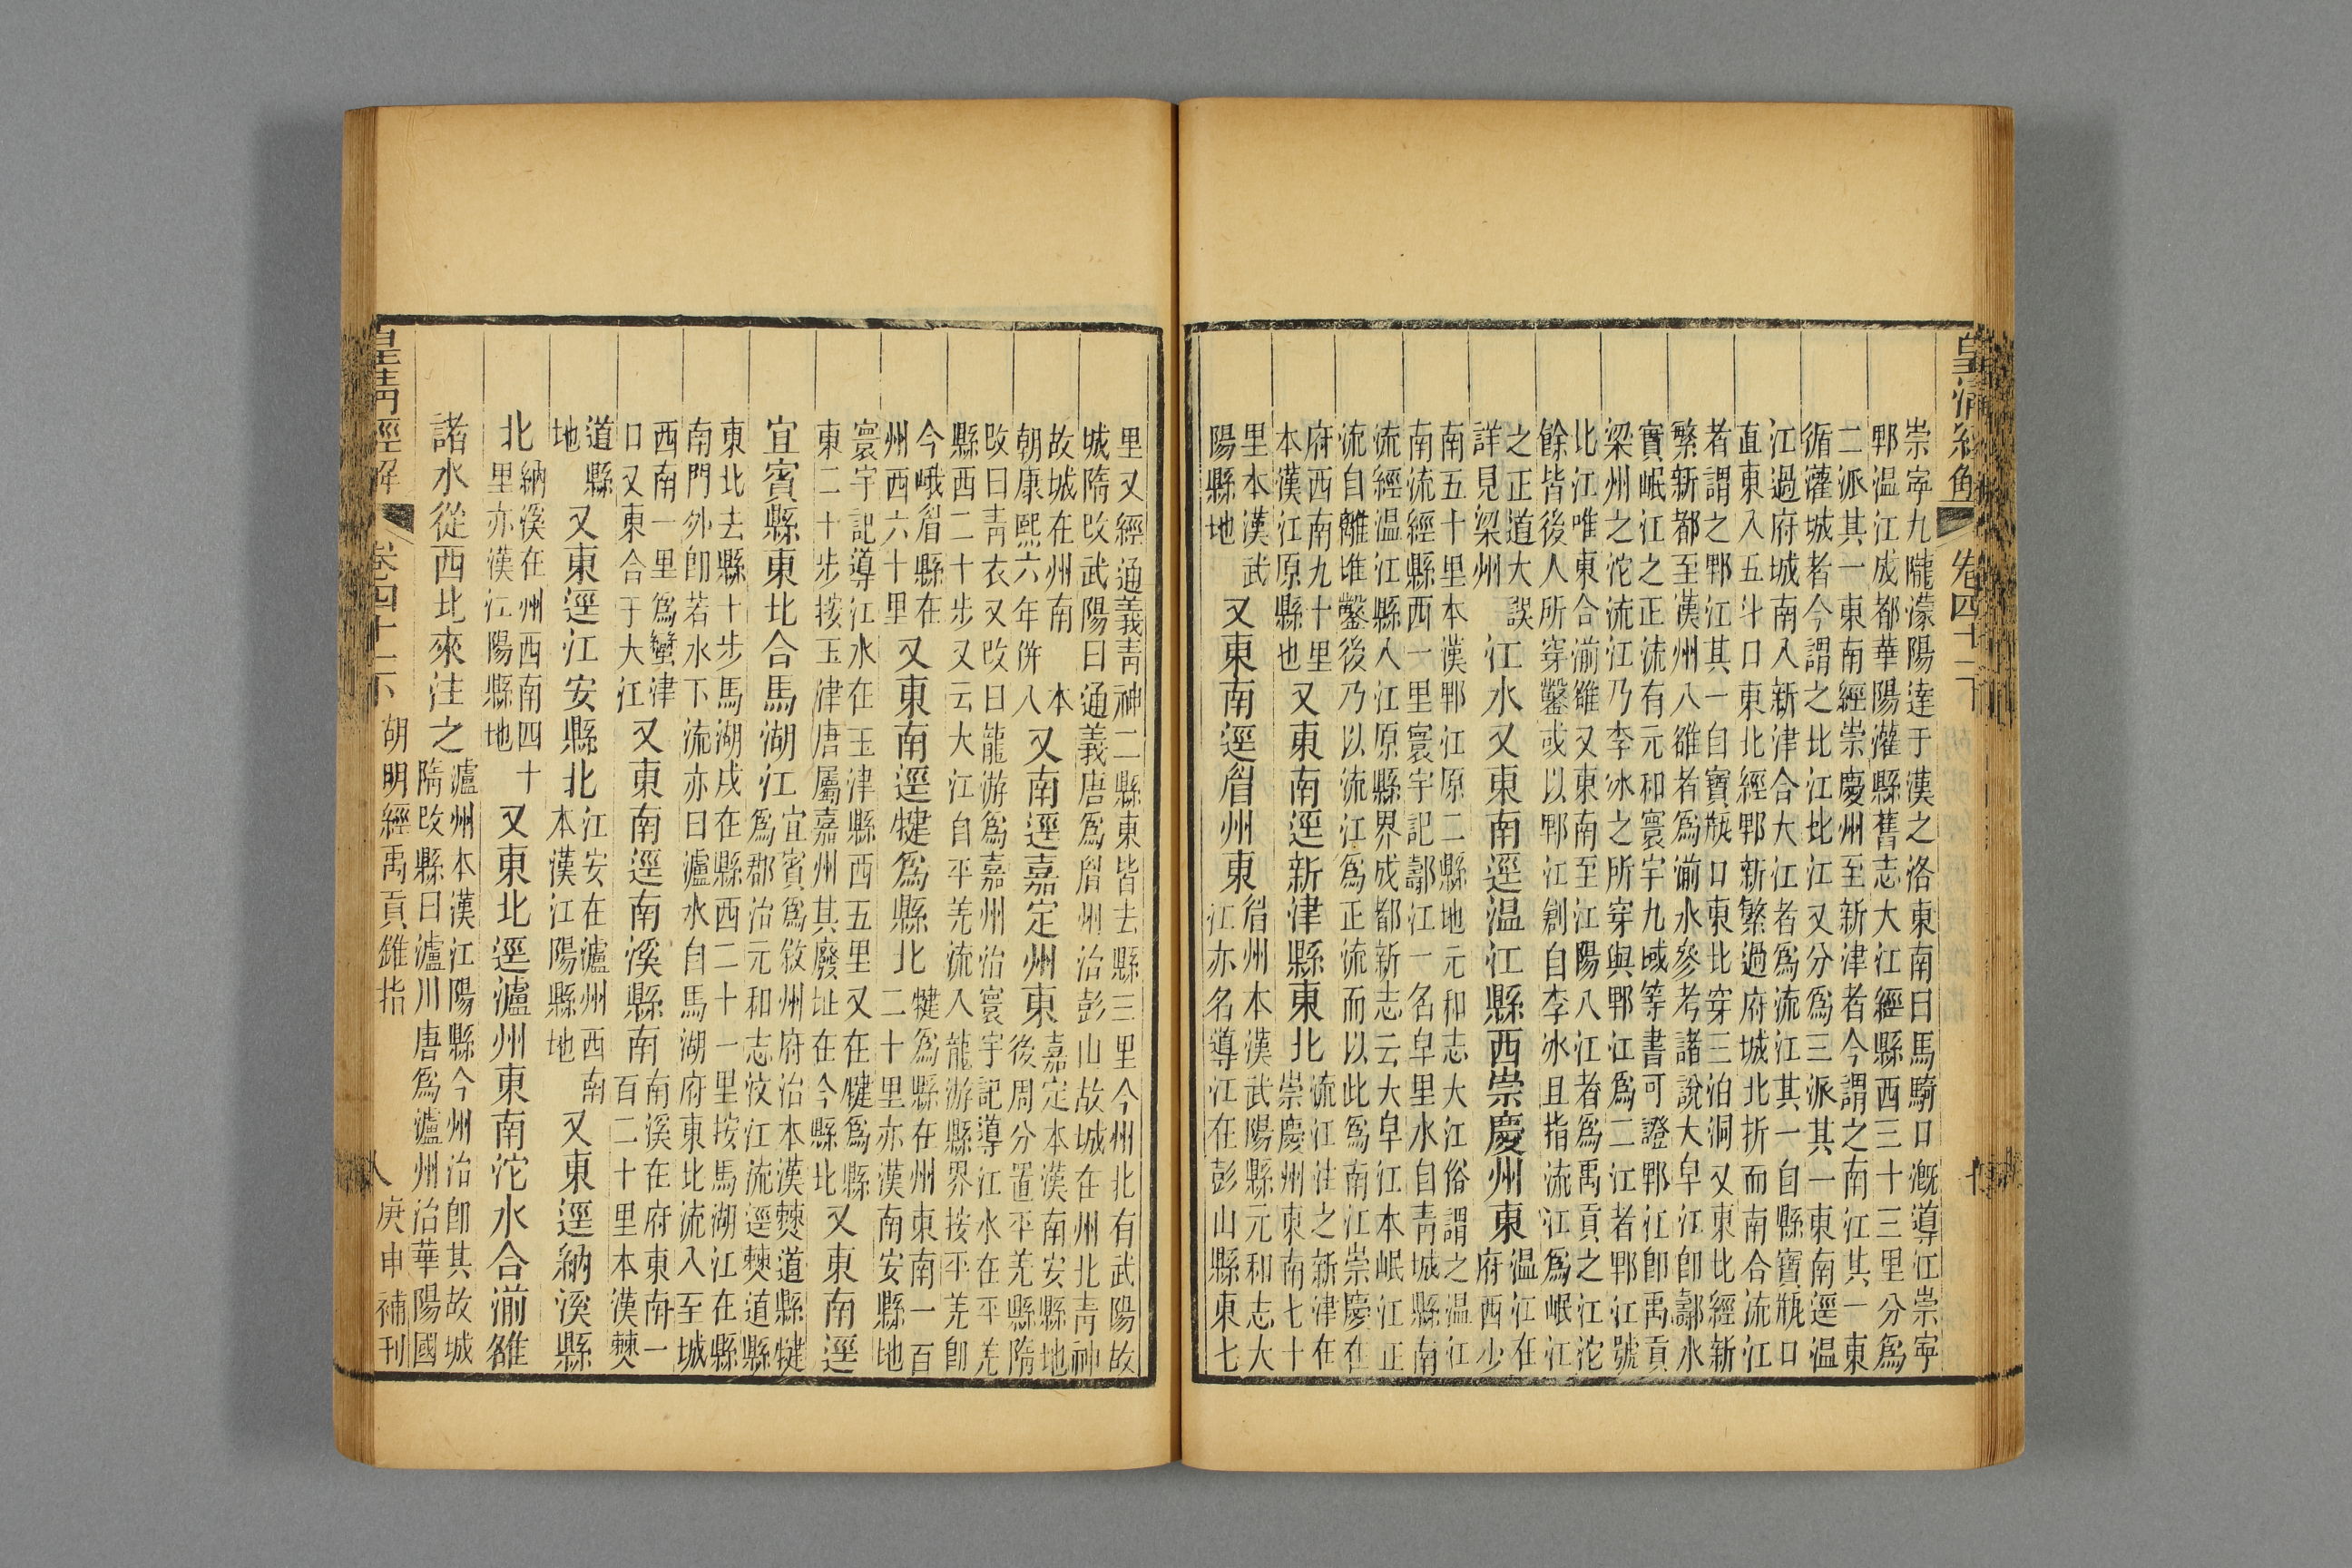 皇清經解
卷四十二下
崇寧九隴濛陽達于漢之洛東南曰馬騎口漑導江崇寧
郫温江成都華陽灌縣舊志大江經縣西三十三里分爲
二派其一東南經崇慶州至新津者今謂之南江其一東
循灌城者今謂之北江北江又分爲三派其一東南逕温
江過府城南入新津合大江者爲流江其一自縣寶瓶口
直東入五斗口東北經郫新繁過府城北折而南合流江
者謂之郫江其一自寶瓶口東北穿三泊洞又東北經新
繁新都至漢州入雒者爲湔水參考諸說大皁江卽鄩水
實岷江之正流有元和寰宇九域等書可證郫江卽禹貢
梁州之沱流江乃李冰之所穿與郫江爲二江者郫江號
北江唯東合湔雒又東南至江陽入江者爲禹貢之江沱
餘皆後人所穿鑿或以郫江創自李冰且指流江爲岷江
之正道大誤
詳見梁州
江水又東南逕温江縣西崇慶州東
温江在
府西少
南五十里本漢郫江原二縣地元和志大江俗謂之温江
南流經縣西一里寰宇記鄩江一名皁里水自青城縣南
流經温江縣入江原縣界成都新志云大皁江本岷江正
流自離堆鑿後乃以流江爲正流而以此爲南江崇慶在
府西南九十里
本漢江原縣也
又東南逕新津縣東北
流江注之新津在
崇慶州東南七十
里本漢武
陽縣地
又東南逕眉州東
眉州本漢武陽縣元和志大
江亦名導江在彭山縣東七
里又經通義青神二縣東皆去縣三里今州北有武陽故
城隋改武陽曰通義唐爲眉州治彭山故城在州北青神
故城在州南本
朝康熙六年併入
又南逕嘉定州東
嘉定本漢南安縣地
後周分置平羌縣隋
改曰青衣又改曰龍游爲嘉州治寰宇記導江水在平羌
縣西二十步又云大江自平羌流入龍游縣界按平羌卽
今峨眉縣在
州西六十里
又東南逕犍爲縣北
犍爲縣在州東南一百
二十里亦漢南安縣地
寰宇記導江水在玉津縣西五里又在犍爲縣
東二十步按玉津唐屬嘉州其廢址在今縣北
又東南逕
宜賓縣東北合馬湖江
宜賓爲敘州府治本漢僰道縣犍
爲郡治元和志汶江流逕僰道縣
東北去縣十步馬湖戍在縣西二十一里按馬湖江在縣
南門外卽若水下流亦曰瀘水自馬湖府東北流入至城
西南一里爲蠻津
口又東合于大江
又東南逕南溪縣南
南溪在府東南一
百二十里本漢僰
道縣
地
又東逕江安縣北
江安在瀘州西南
本漢江陽縣地
又東逕納溪縣
北
納溪在州西南四十
里亦漢江陽縣地
又東北逕瀘州東南沱水合湔雒
諸水從西北來注之
瀘州本漢江陽縣今州治卽其故城
隋改縣曰瀘川唐爲瀘州治華陽國
皇清經解
卷四十二下
胡明經禹貢錐指
庚申補刊